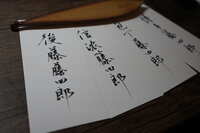 藤四郎
藤四郎
信濃藤四郎
後藤藤四郎